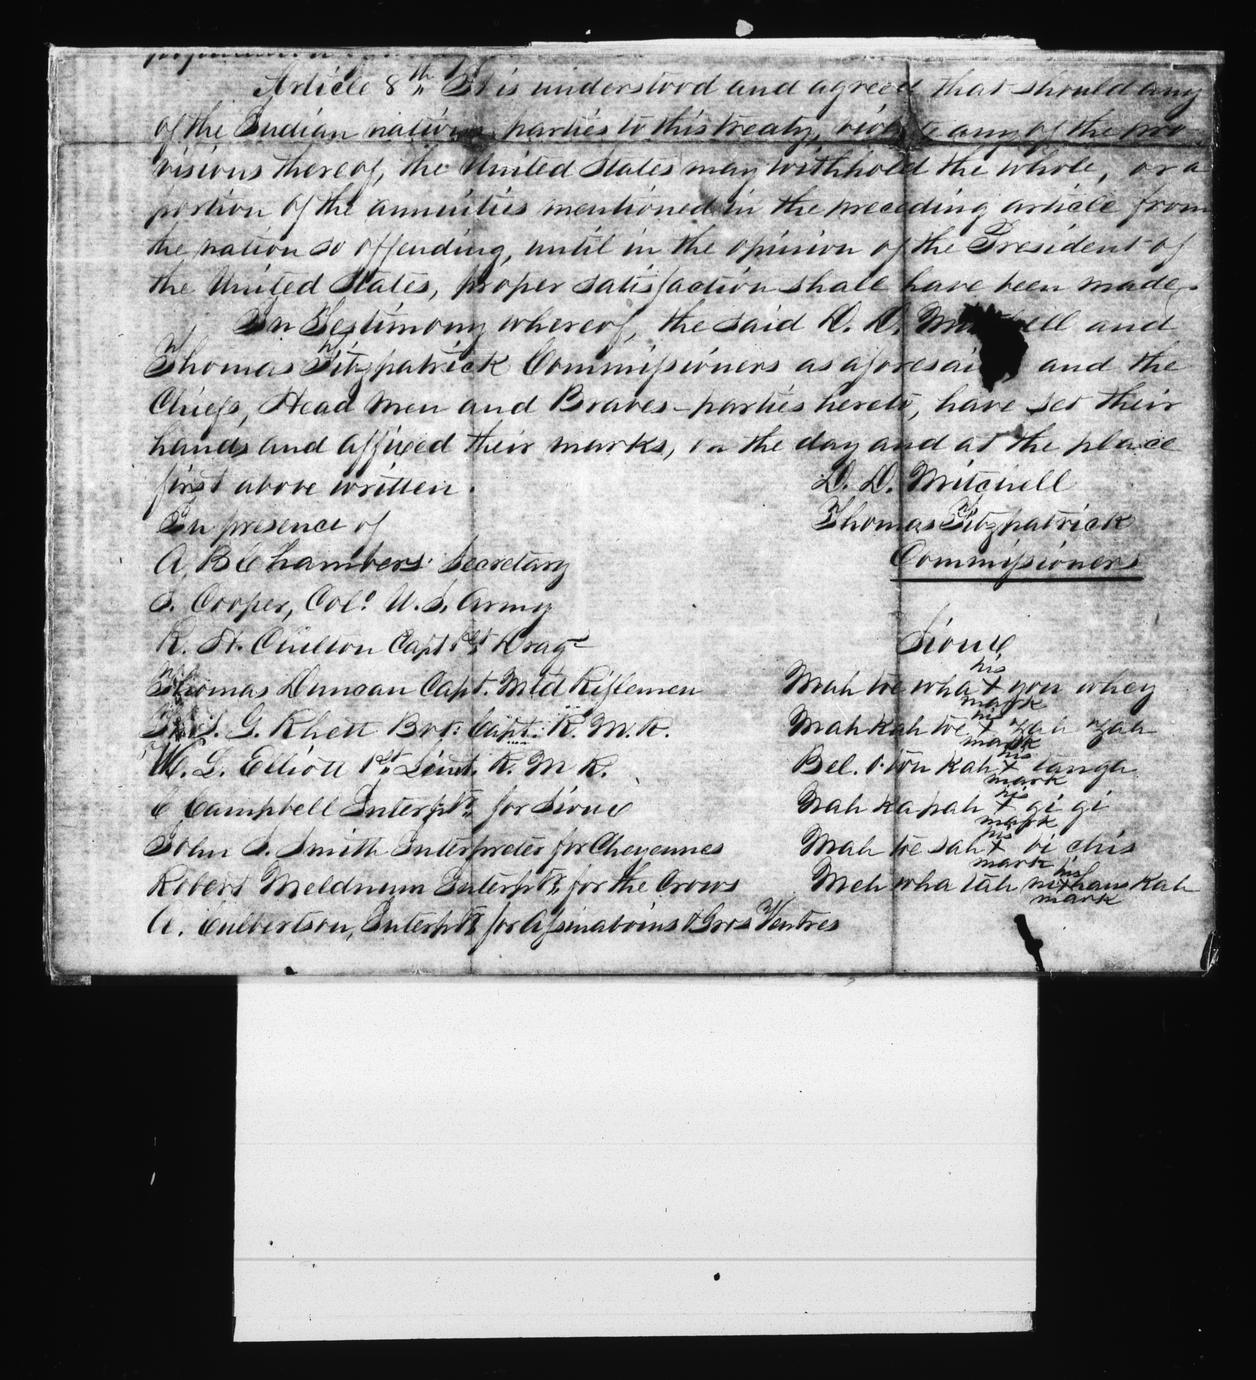 Article 8th It is understood and agreed that should any
of the Indian nations, parties to this treaty, violate any of the pro
visions thereof, the United States may withhold the whole, or a
portion of the annuities mentioned in the preceding article from
the nation so offending, until in the opinion of the President of
the United States, proper satisfaction shall have been made.
In Testimony whereof, the said D. D. Mitchell and
Thomas Fitzpatrick Commissioners as aforesaid and the
Chiefs, Head Men and Braves parties hereto, have set their
hands and affixed their marks, on the day and at the place
first above written.
D. D. Mitchell
In presence of
Thomas Fitzpatrick
A. B. Chambers Secretary
Commissioners
S. Cooper, Col. U. S. Army
R. H. Chilton Capt 1st Drags
Sioux
Thomas Duncan Capt. Mtd Riflemen
Mah toe wha his x mark you whey
G. Rhett Bvt. Capt. R. M. R.
Mah kah toe his x mark zah zah
W. L. Elliott 1st Lieut. R. M R.
Bel. o ton kah his x mark tanga
C Campbell Interptr. for Sioux
Nah ka pah his x mark gi gi
John S. Smith Interpreter for Cheyennes
Mah toe sah his x mark bi chis
Robert Meldrum Interptr. for the Crows
Meh wha tah ni his x mark hans kah
A. Culbertson, Interptr for Assinaboins & Gros Ventres